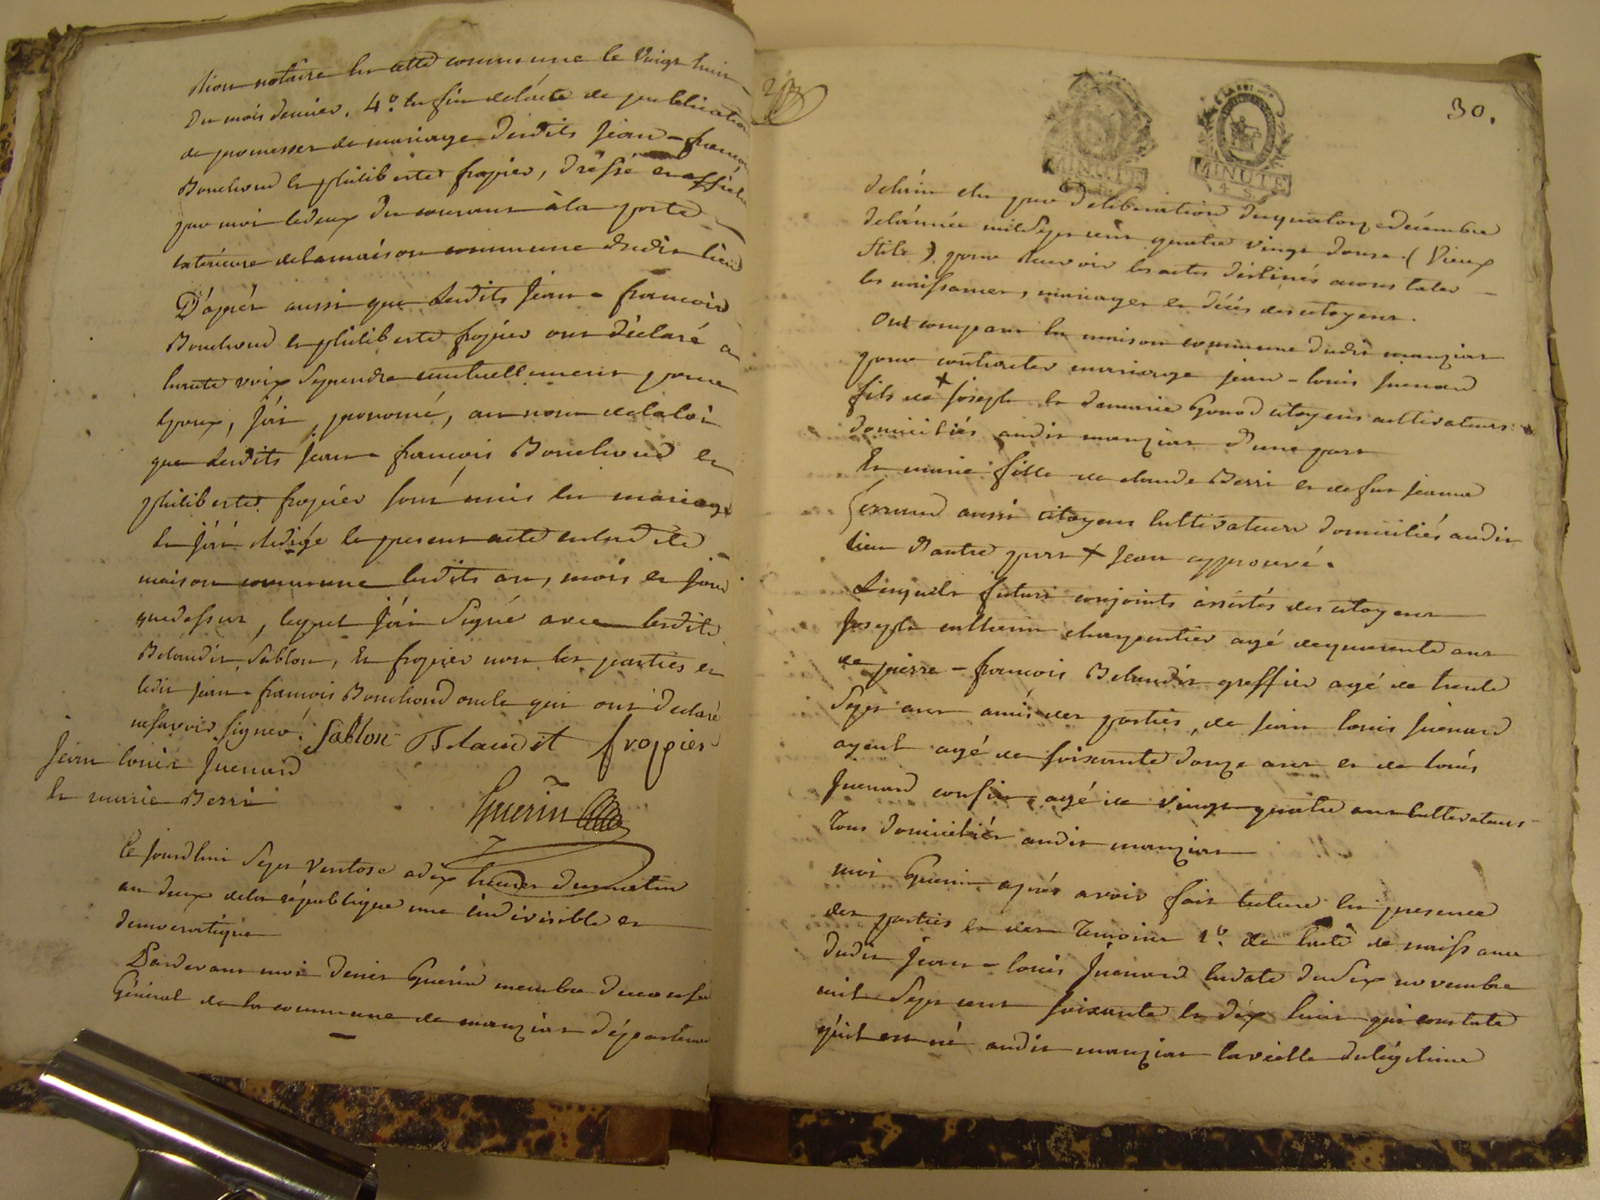 Rion notaire en cette commune le vingt huit
du mois dernier. 4.o en fin de l'acte de publication
de promesses de mariage desdits Jean-françois
Bouchoud et philiberte fropier, dressé et affiché
par moi le deux du courant à la porte
extérieure de la maison commune dudit lieu
D'après aussi que lesdits Jean-francois
Bouchoud et philiberte fropier ont déclaré a
haute voix se prendre mutuellement pour
Epoux, J'ai prononcé, au nom de la loi
que lesdits Jean-francois Bouchoud et
philiberte fropier sont unis en mariage
et j'ai rédigé le present acte en ladite
maison commune lesdits an, mois et jour
que dessus, lequel J'ai signé avec lesdits
Blandit, Sablon, et fropier non les parties et
ledit jean-francois Bouchoud oncle qui ont déclaré
ne savoir signer. Sablon Blandit fropier
Jean louis Juenard
et marie Berri
Guerin
Cejourdhui sept ventose a dix heures du matin
an deux de la république une indivisible et
democratique
Pardevant moi Denis Guerin membre du conseil
Général de la commune de manziat départem
30.
MINUTE
MINUTE
4 S
delain elu par deliberation du quatorze décembre
de l'année mil sept cent quatre vingt douze (vieux
stile) pour recevoir les actes destinés a constater
les naissances, mariages et décès des citoyens.
Ont comparu en maison commune dudit manziat
pour contracter mariage jean-louis Juenard
fils de + Joseph et de marie Gonod citoyens cultivateurs
domiciliés audit manziat d'une part
Et marie fille de claude Berri et de feu jeanne
ferrand aussi citoyens cultivateurs domiciliés audit
lieu d'autre part + Jean approuvé.
Lesquels futurs conjoints assistés des citoyens
Joseph catherin charpentier agé de quarante ans
de pierre-francois Blandit greffier agé de trente
sept ans amis des parties, de jean louis Juenard
ayeul agé de soixante douze ans et de louis
Juenard cousin, agé de vingt quatre ans cultivateurs
tous domiciliés audit manziat
moi Guerin après avoir fait lecture en presence
des parties et des temoins 1.o de l'acte de naissance
dudit Jean-louis Juenard en date du dix novembre
mil sept cent soixante et dix huit qui constate
qu'il est né audit manziat la veille du légitime